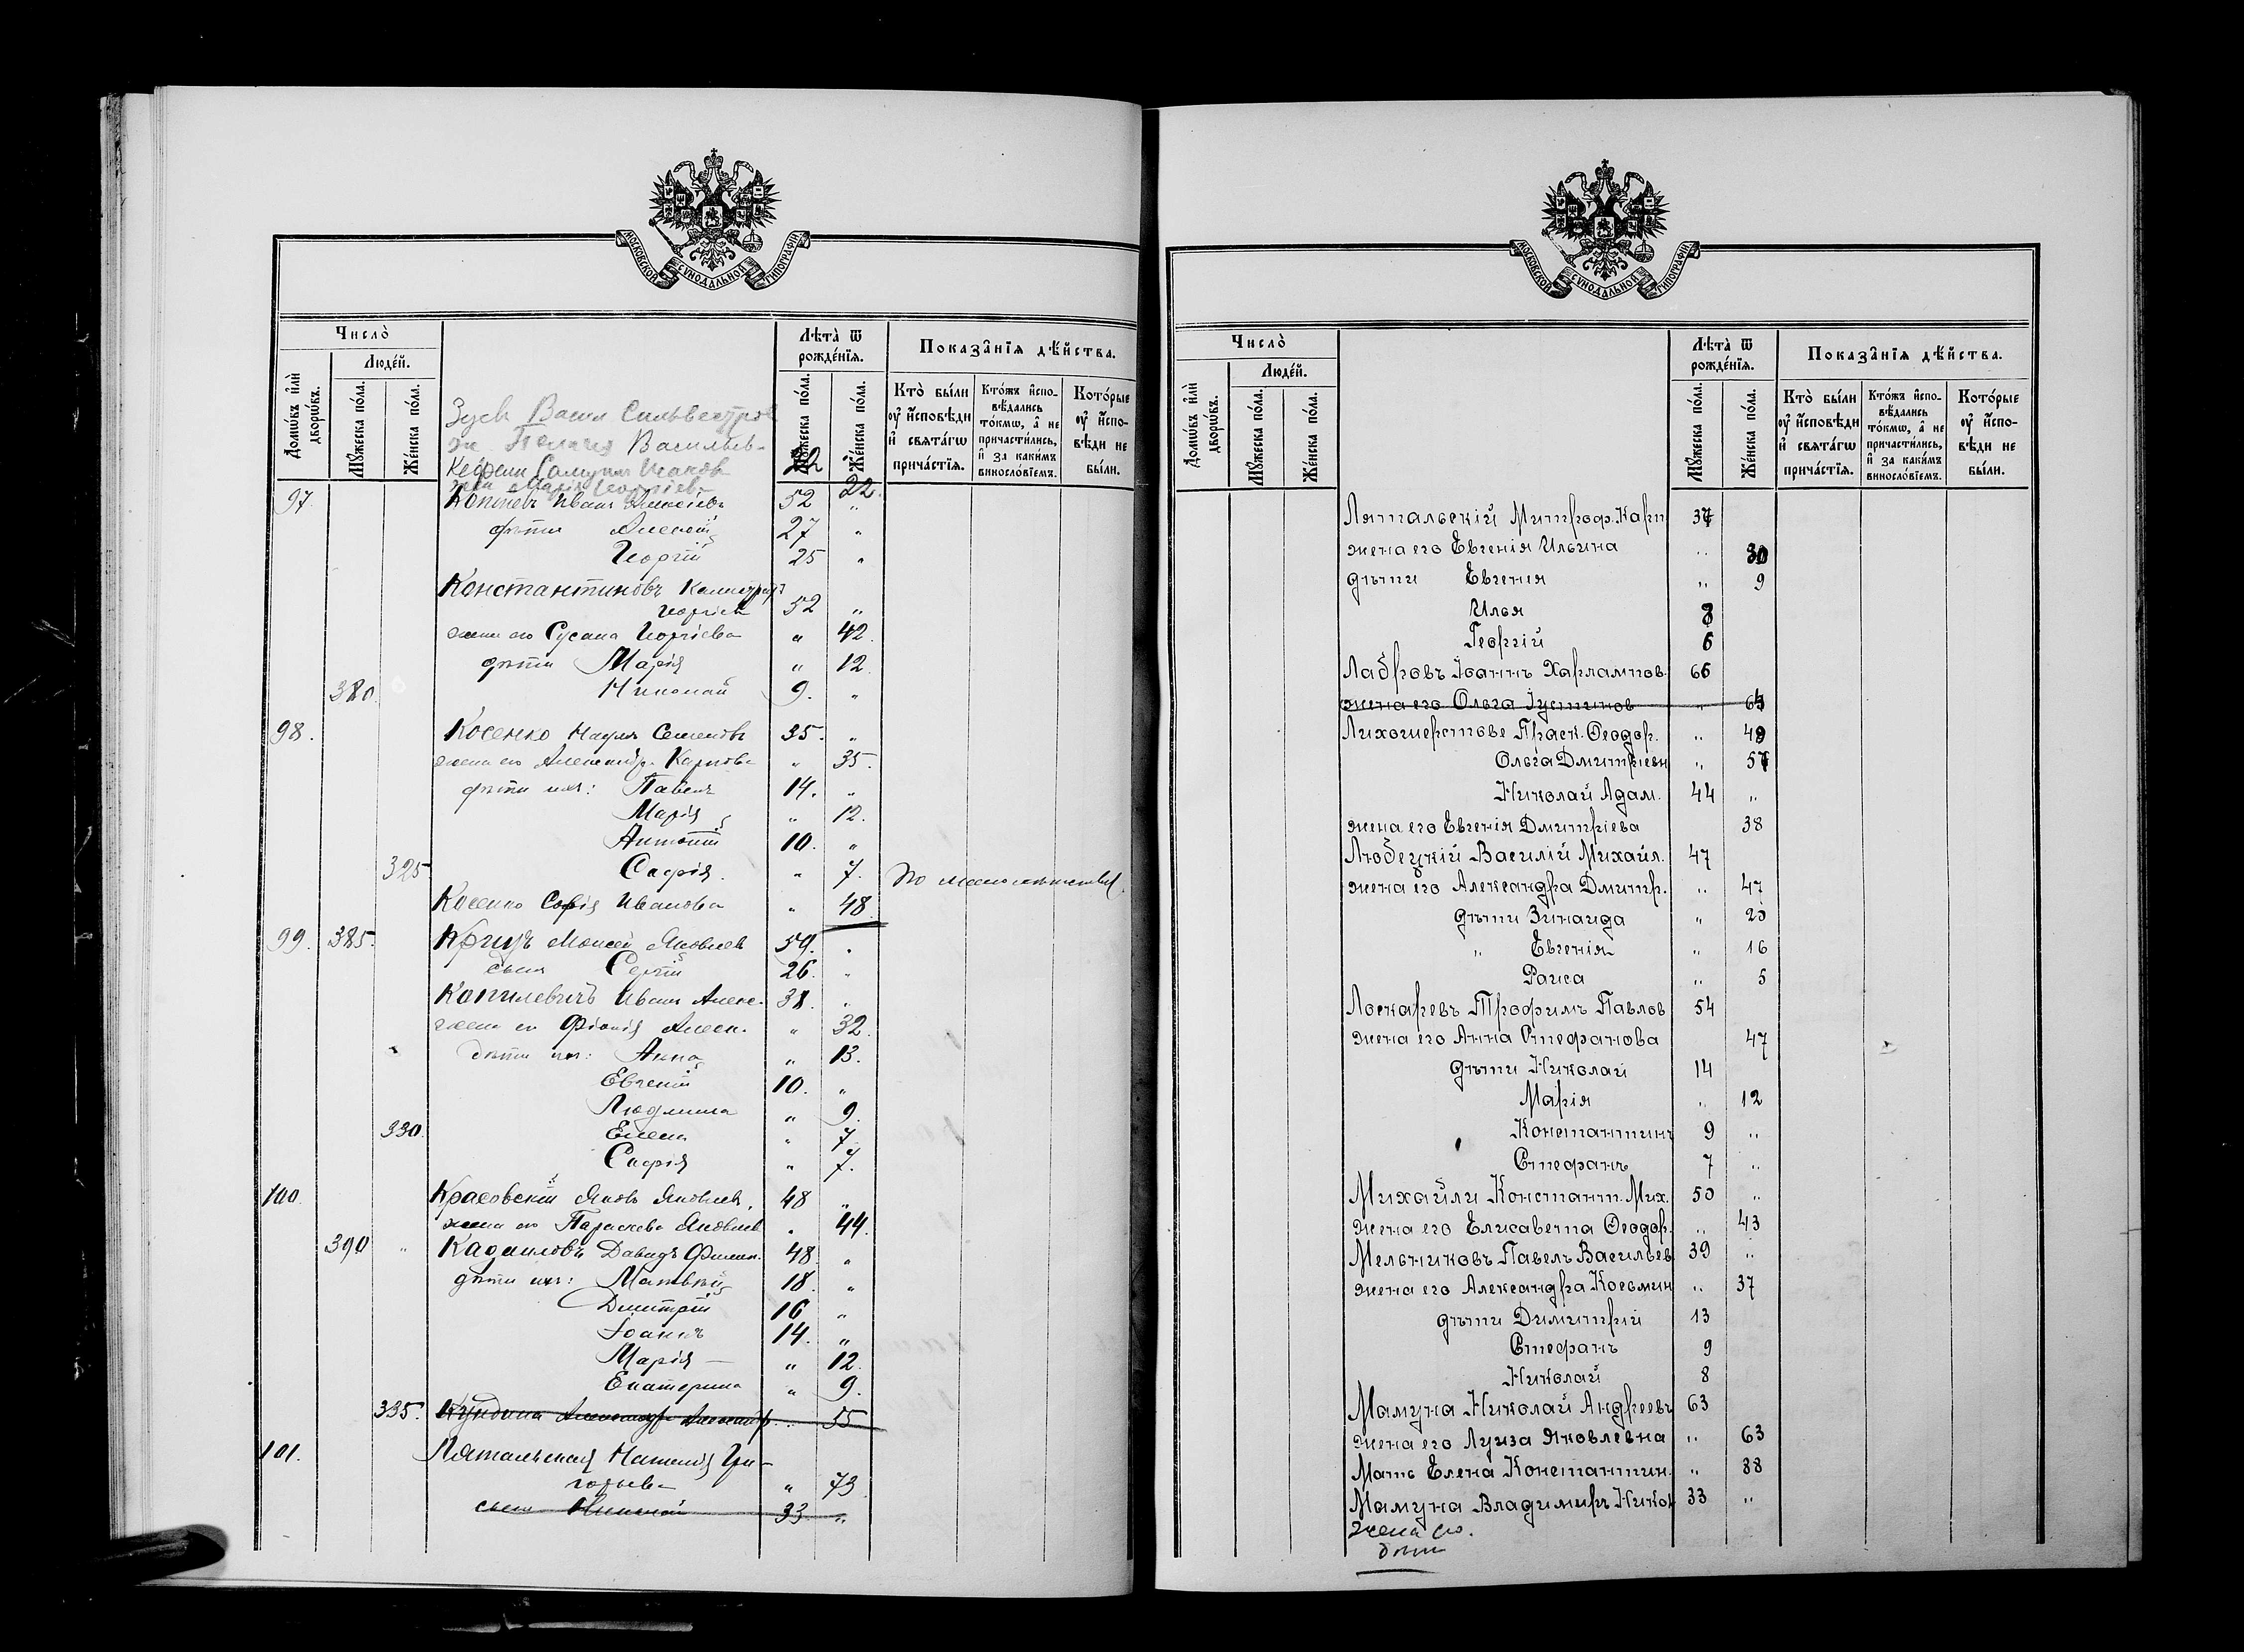 МОСКОВСКОЙ СУНОДАЛЬНОЙ ТИПОГРАФІИ
Число̀
Домѡ́въ и҆лѝ дворѡ́въ.
Люде́й.
Мꙋ́жеска по́ла.
Же́нска по́ла.
Лѣта̀ ѿ рожде́нїѧ.
Мꙋ́жеска по́ла.
Же́нска по́ла.
Показа̑нїѧ дѣ́йства.
Кто̀ бы́ли ᲂу҆ и҆́сповѣди и҆ свѧта́гѡ прича́стїѧ.
Кто́жъ и҆спо-вѣ́дались то́кмѡ, а҆ не причасти́лись, и҆ за каки́мъ виносло́вїемъ.
Кото́рые ᲂу҆ и҆́спо-вѣди не бы́ли.
Зуевъ Васил Сильвестров
ж. Пелагия Васильев-
22
22.
97. Коптевъ Иванъ Алексѣев 52 „
дѣти Алексѣй 27 „
Георгій 25 „
Константиновъ
Георгіев 52 „
жена его Сусана Георгіева „ 42.
дѣти Марія „ 12.
380. Николай 9. „
98. Косенко Наумъ Семеновъ 35. „
жена его Александр. Карпова „ 35.
дѣти ихъ: Павелъ 14. „
Марія „ 12.
Антоній 10. „
325 Софія. „ 7. По малолѣтству.
Косенко Софія Иванова „ 48.
99. 385. Крицъ Моисей Яковлев 59. „
сынъ Сергій 26. „
Копилевичъ Иванъ Алекс. 38. „
жена его Фіонія Алекс. „ 32.
дѣти ихъ: Анна „ 13.
Евгеній 10. „
Людмила „ 9.
330. Елена „ 7.
Софія „ 7.
100. Красовскій Яковъ Яковлев. 48 „
жена его Параскева Яковлев „ 44.
390 „ Давидъ Филип. 48. „
дѣти ихъ: Матвѣй 18. „
Дмитрій 16 „
Іоаннъ 14. „
Марія — „ 12.
Екатерина „ 9.
335. Кундина Александр. „ 55
101. Лятальская Наталія Гри-
горьева „ 73
сынъ Николай 33. „
МОСКОВСКОЙ СУНОДАЛЬНОЙ ТИПОГРАФІИ
Число̀
Домѡ́въ и҆лѝ дворѡ́въ.
Люде́й.
Мꙋ́жеска по́ла.
Же́нска по́ла.
Лѣта̀ ѿ рожде́нїѧ.
Мꙋ́жеска по́ла.
Же́нска по́ла.
Показа̑нїѧ дѣ́йства.
Кто̀ бы́ли ᲂу҆ и҆́сповѣди и҆ свѧта́гѡ прича́стїѧ.
Кто́жъ и҆спо-вѣ́дались то́кмѡ, а҆ не причасти́лись, и҆ за каки́мъ виносло́вїемъ.
Кото́рые ᲂу҆ и҆́спо-вѣди не бы́ли.
Лятальскій Митроф. Карп. 37
жена его Евгенія Ильина „ 30
дѣти Евгения „ 9
Илья 8
Георгій 6
Лабровъ Іоаннъ Харлампов. 66
жена его Ольга Іустинов „ 63
Лихошерстове Праск. Ѳеодор. „ 49
Ольга Дмитріевн „ 57
Николай Адам. 44 „
жена его Евгенія Дмитріева 38
Любецкій Василій Михайл. 47
жена его Александра Дмитр. „ 47
дѣти Зинаида „ 20
„ Евгенія „ 16
Раиса „ 5
Лоскаревъ Трофимъ Павлов 54
жена его Анна Стефанова 47
дѣти Николай 14
Марія „ 12
Константинъ 9 „
Стефанъ 7 „
Михайли Констант. Мих. 50 „
жена его Елисавета Ѳеодор. „ 43
Мельниковъ Павелъ Васильев. 39 „
жена его Александра Косьмин „ 37
дѣти Димитрій 13
Стефанъ 9
Николай 8
Мамуна Николай Андреевъ 63
жена его Луиза Яковлевна „ 63
Мать Елена Константин. „ 88
Мамуна Владимиръ Никол 33 „
жена его.
дѣти